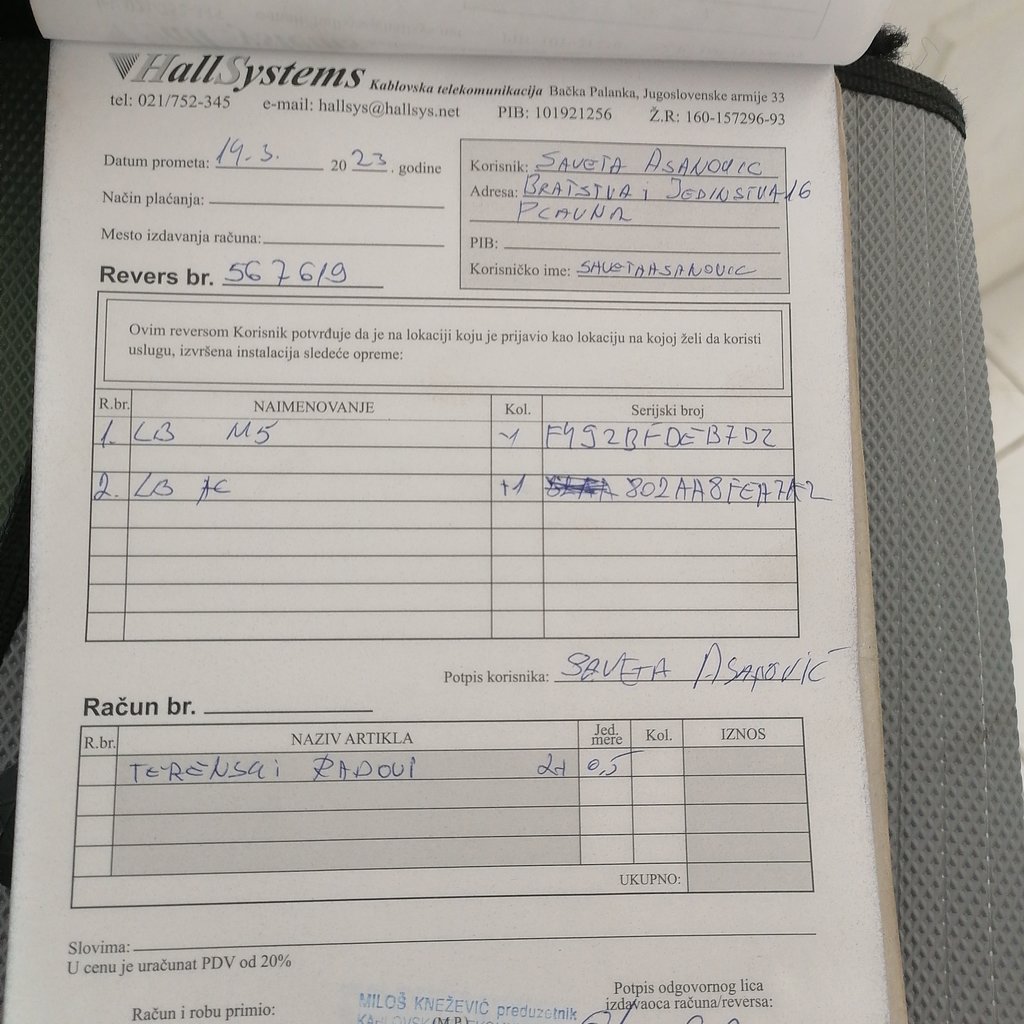 HallSystems Kablovska telekomunikacija Bačka Palanka, Jugoslovenske armije 33
tel: 021/752-345 e-mail: hallsys@hallsys.net PIB: 101921256 Ž.R: 160-157296-93
Datum prometa: 19.3. 20 23. godine
Način plaćanja:
Mesto izdavanja računa:
Revers br. 567619
Korisnik: SAVETA ASANOVIC
Adresa: BRATSTVA i JEDINSTVA 16
PLAVNA
PIB:
Korisničko ime: SAVETAASANOVIC
Ovim reversom Korisnik potvrđuje da je na lokaciji koju je prijavio kao lokaciju na kojoj želi da koristi
uslugu, izvršena instalacija sledeće opreme:
R.br. NAIMENOVANJE Kol. Serijski broj
1. LB M5 -1 F492BFDEB7D2
2. LB AC +1 802AA8FEA7A2
Potpis korisnika: SAVETA ASANOVIĆ
Račun br.
R.br. NAZIV ARTIKLA Jed. mere Kol. IZNOS
TERENSKI RADOVI 2+ 0,5
UKUPNO:
Slovima:
U cenu je uračunat PDV od 20%
Račun i robu primio:
MILOŠ KNEŽEVIĆ preduzetnik
(M.P.)
Potpis odgovornog lica
izdavaoca računa/reversa: